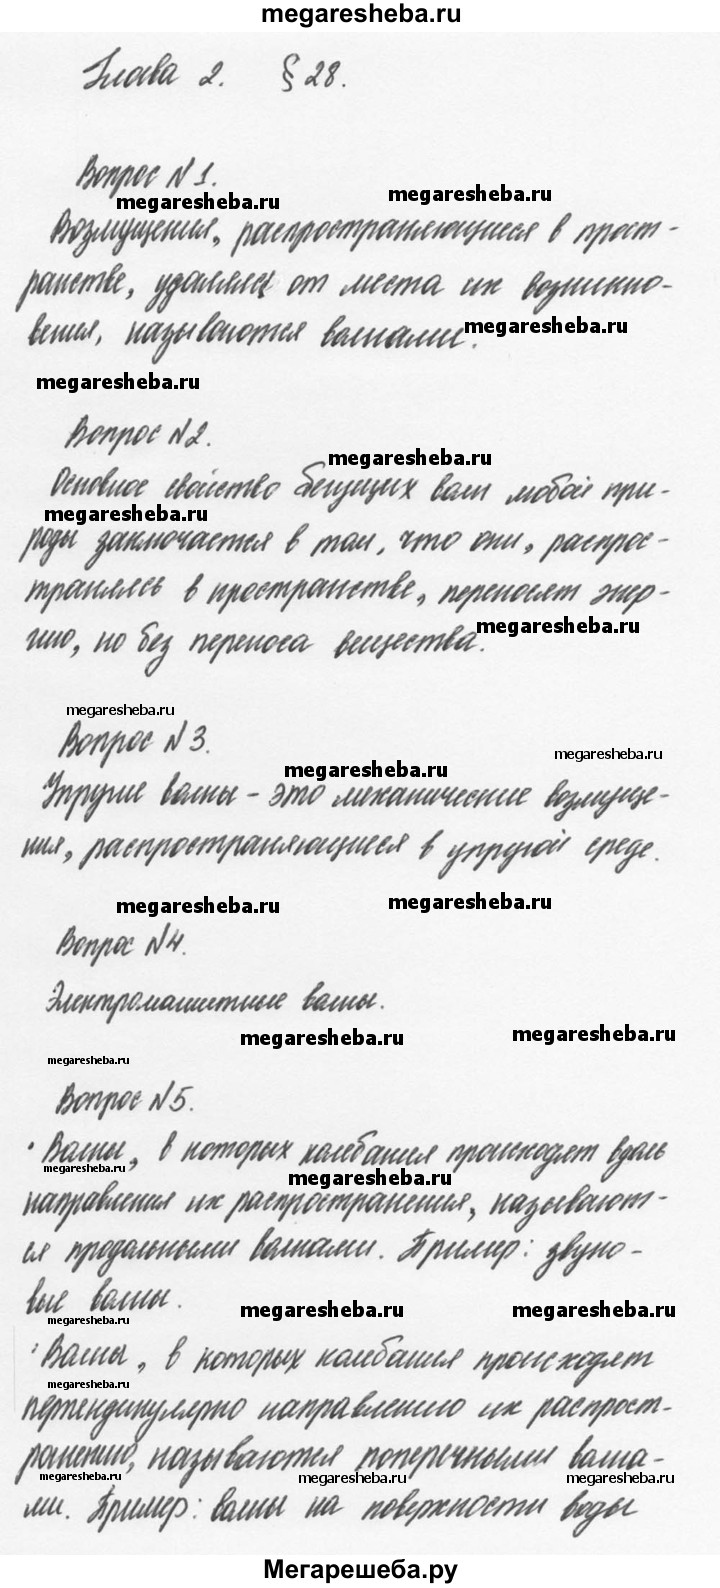 megaresheba.ru
Глава 2. § 28.
Вопрос №1.
megaresheba.ru megaresheba.ru
Возмущения, распространяющиеся в прост-
ранстве, удаляясь от места их возникно-
вения, называются волнами.
megaresheba.ru
megaresheba.ru
Вопрос №2.
megaresheba.ru
Основное свойство бегущих волн любой при-
megaresheba.ru
роды заключается в том, что они, распрос-
траняясь в пространстве, переносят энер-
гию, но без переноса вещества.
megaresheba.ru
megaresheba.ru
Вопрос №3.
megaresheba.ru
megaresheba.ru
Упругие волны - это механические возмуще-
ния, распространяющиеся в упругой среде.
megaresheba.ru megaresheba.ru
Вопрос №4.
Электромагнитные волны.
megaresheba.ru megaresheba.ru
megaresheba.ru
Вопрос №5.
· Волны, в которых колебания происходят вдоль
megaresheba.ru megaresheba.ru
направления их распространения, называют-
ся продольными волнами. Пример: звуко-
вые волны.
megaresheba.ru megaresheba.ru
megaresheba.ru
: Волны, в которых колебания происходят
megaresheba.ru
перпендикулярно направлению их распрост-
ранению, называются поперечными волна-
megaresheba.ru megaresheba.ru megaresheba.ru
ми. Пример: волны на поверхности воды
Мегарешеба.ру